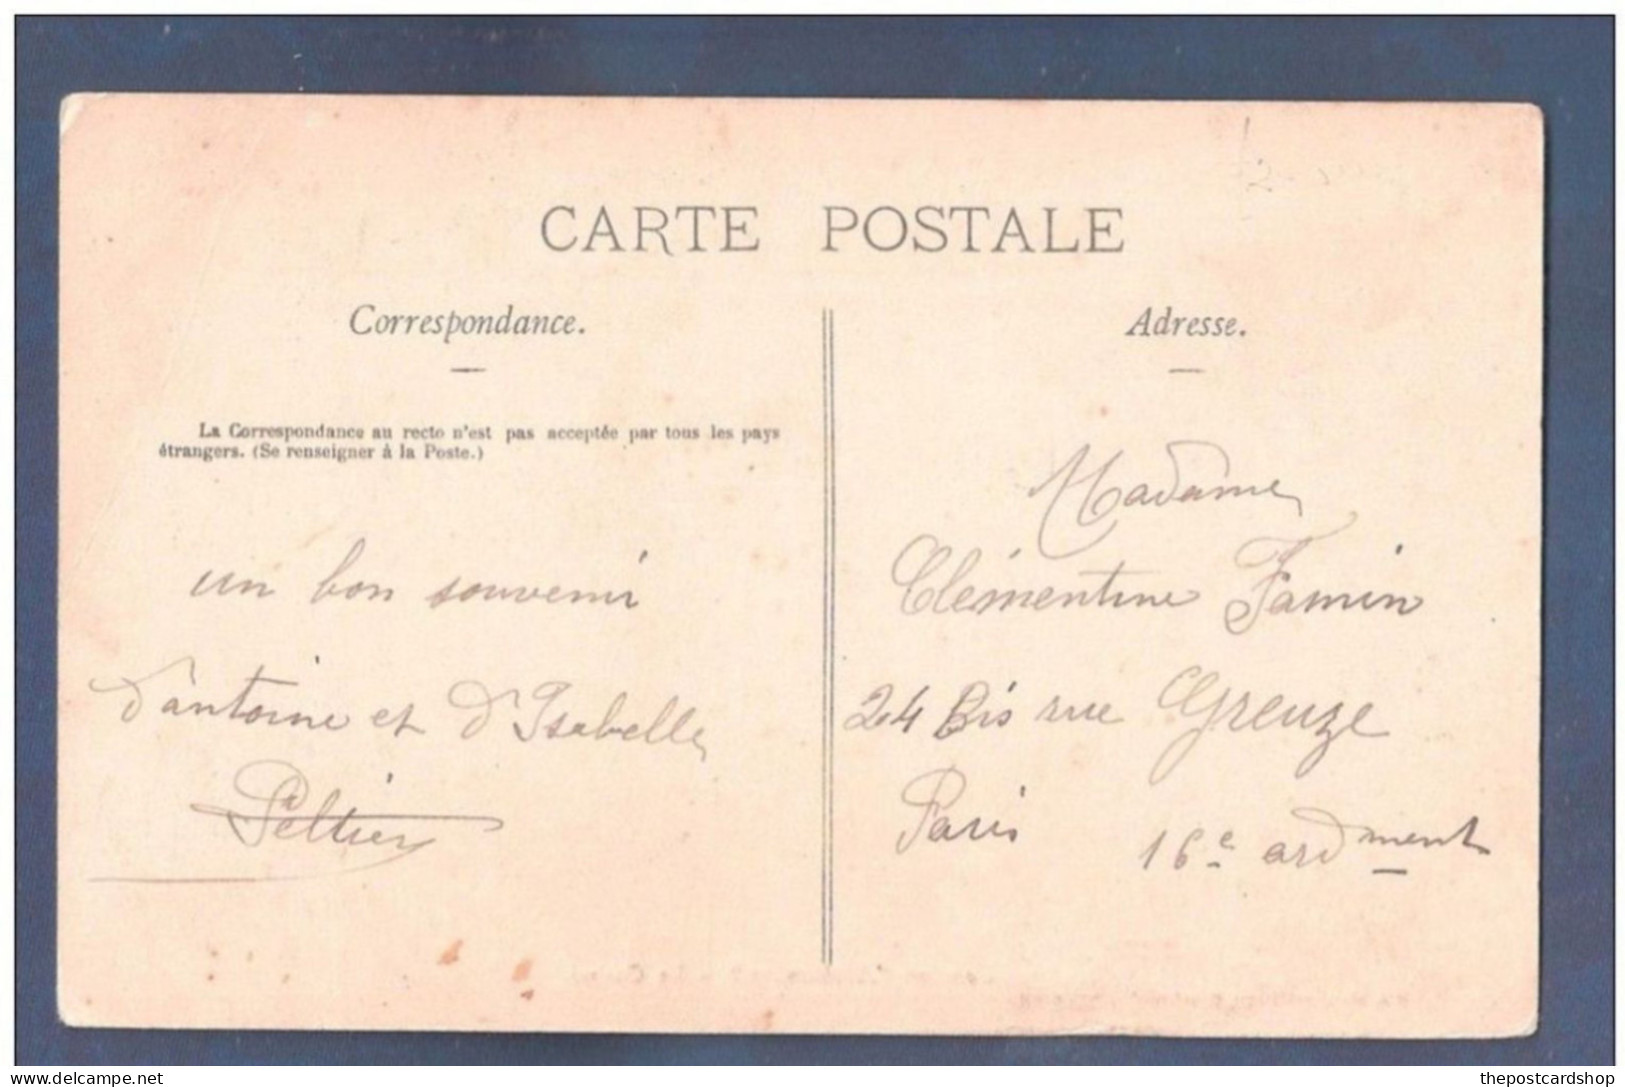 CARTE POSTALE
Correspondance.
La Correspondance au recto n'est pas acceptée par tous les pays
étrangers. (Se renseigner à la Poste.)
un bon souvenir
d'antoine et d'Isabelle
Peltier
Adresse.
Madame
Clémentine Famin
24 Bis rue Greuze
Paris
16e ardment
delcampe.net
thepostcardshop